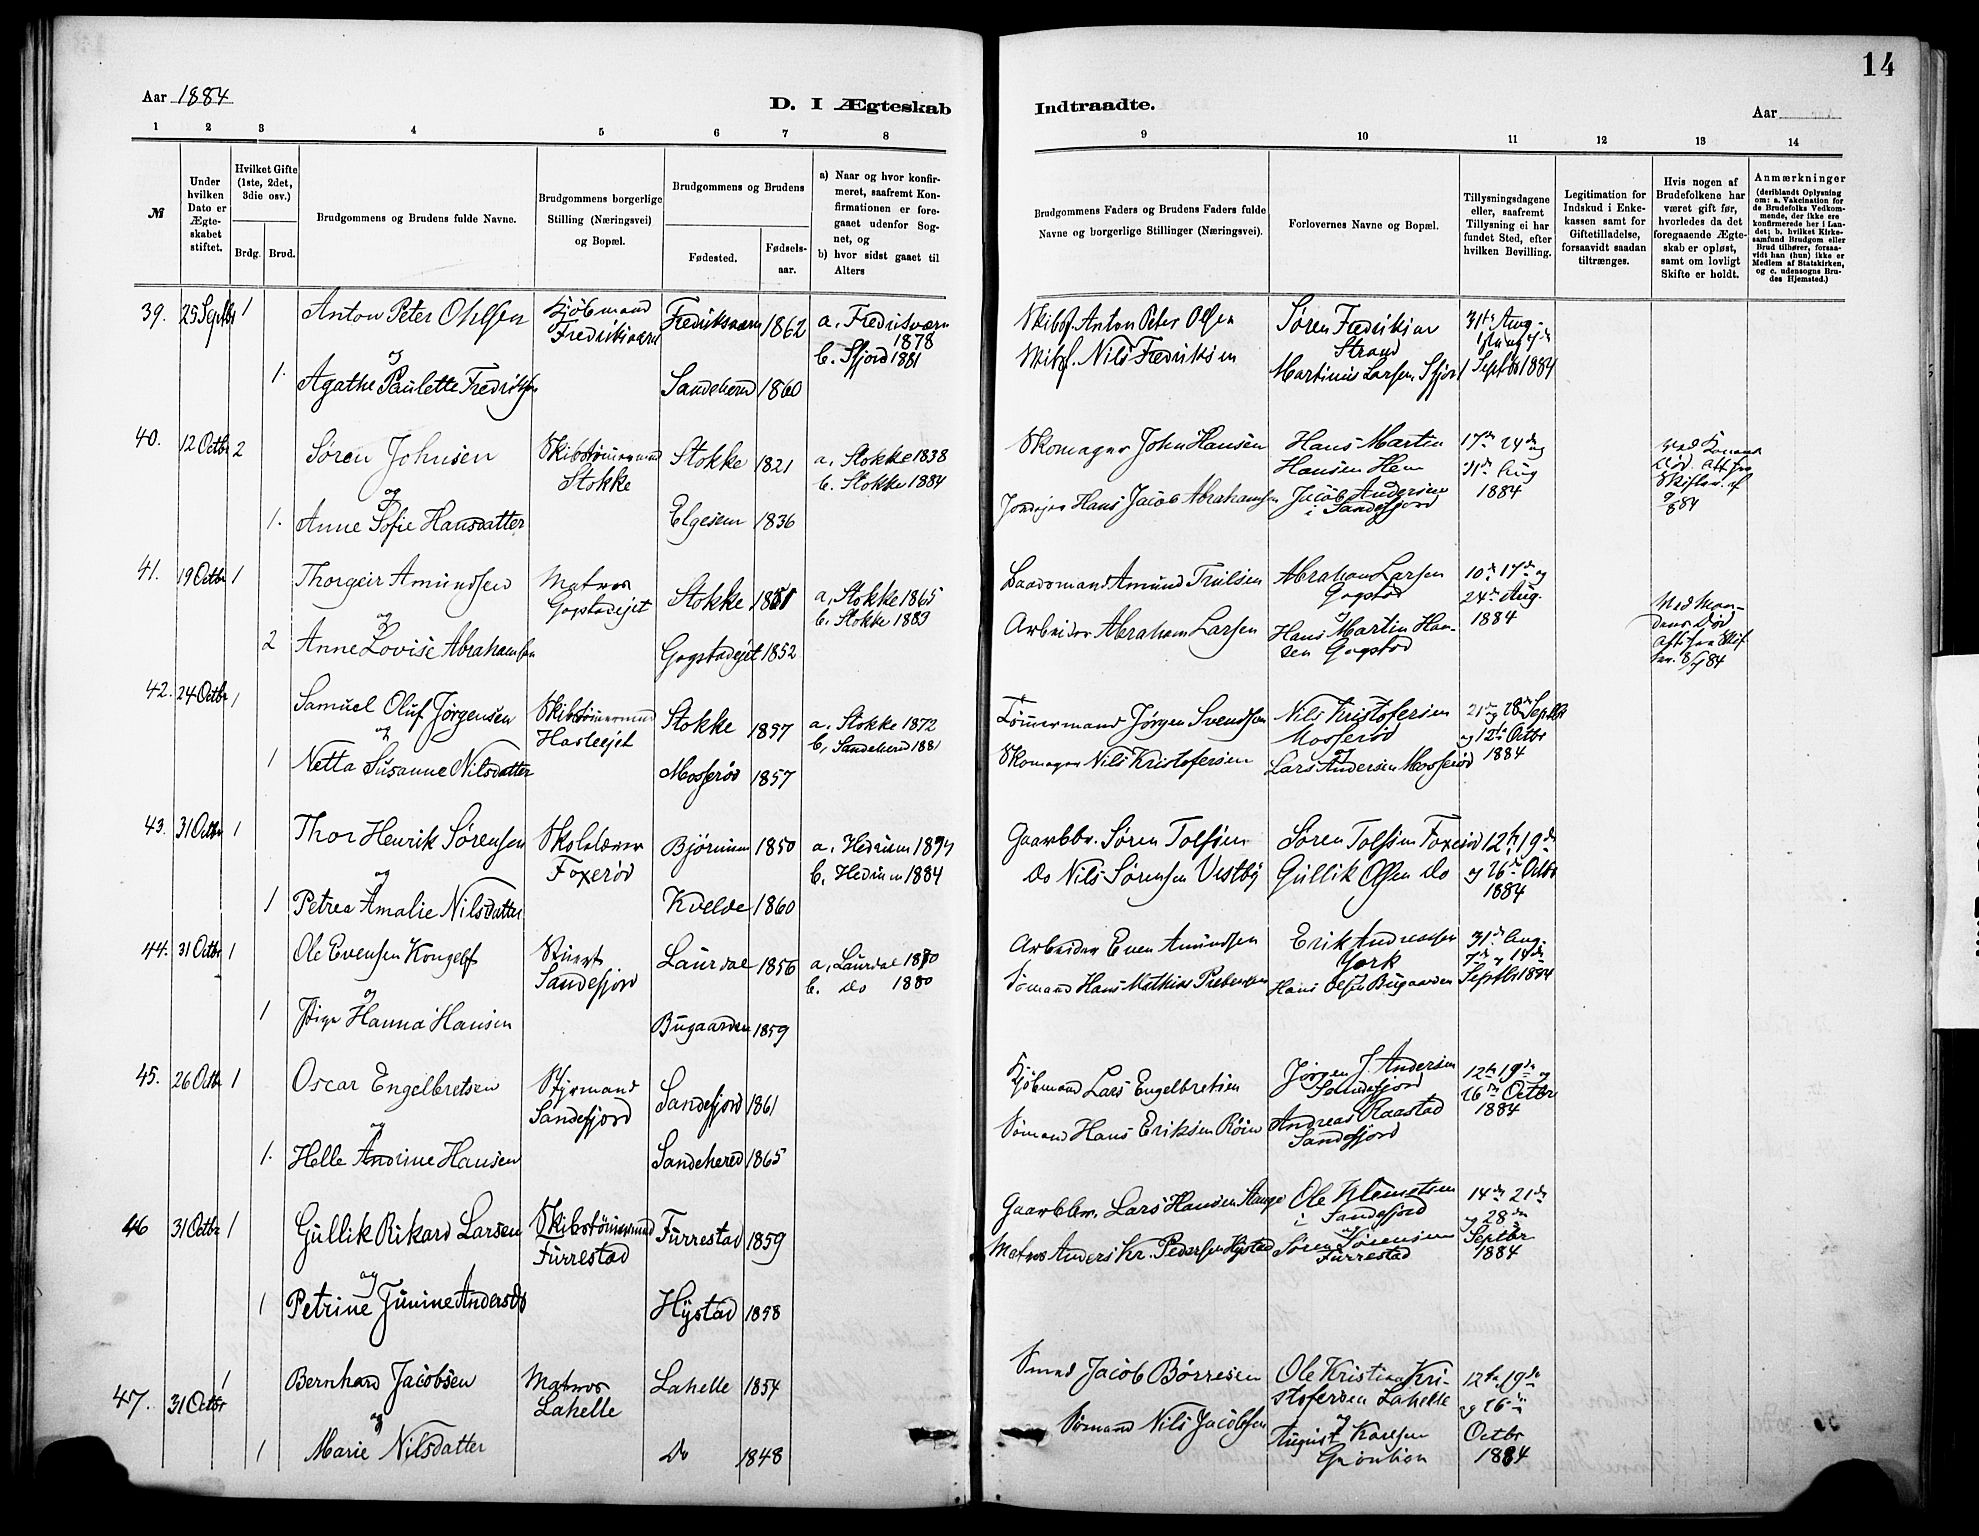 14
Aar 1884
D. I Ægteskab
Indtraadte.
Aar
1 2 3 4 5 6 7 8
9 10 11 12 13 14
№
Under hvilken Dato er Ægteskabet stiftet.
Hvilket Gifte (1ste, 2det, 3die osv.)
Brdg. Brud.
Brudgommens og Brudens fulde Navne.
Brudgommens borgerlige Stilling (Næringsvei) og Bopæl.
Brudgommens og Brudens
Fødested.
Fødselsaar.
a) Naar og hvor konfirmeret, saafremt Konfirmationen er foregaaet udenfor Sognet, og
b) hvor sidst gaaet til Alters
Brudgommens Faders og Brudens Faders fulde Navne og borgerlige Stillinger (Næringsvei).
Forlovernes Navne og Bopæl.
Tillysningsdagene eller, saafremt Tillysning ei har fundet Sted, efter hvilken Bevilling.
Legitimation for Indskud i Enkekassen samt for Giftetilladelse, forsaavidt saadan tiltrænges.
Hvis nogen af Brudefolkene har været gift før, hvorledes da det foregaaende Ægteskab er opløst, samt om lovligt Skifte er holdt.
Anmærkninger
(deriblandt Oplysning om: a. Vakcination for de Brudefolks Vedkommende, der ikke ere konfirmerede her i Landet; b. hvilket Kirkesamfund Brudgom eller Brud tilhører, forsaavidt han (hun) ikke er Medlem af Statskirken, og c. udensogns Brudes Hjemsted.)
39. 25 Septbr 1 Anton Peter Ohlsen Kjøbmand Fredriksværn Fredriksværn 1862 a. Fredriksværn 1878 b. Sfjord 1881
Skibsf. Anton Peter Olsen Søren Fredriksen Strand 31te Aug.
og
1. Agathe Paulette Fredriksen Sandeherred 1860
Skibsf. Nils Fredriksen Martinius Larsen Sfjord Septbr 1884
40. 12 Octbr 2 Søren Johnsen Skibstømmermand Stokke Stokke 1821 a. Stokke 1838 b. Stokke 1884
Skomager John Hansen Hans Martin Hansen Hem 17de 24de og 31te Aug 1884
og
1. Anne Sofie Hansdatter Elgesem 1836
Hans Jacob Abrahamsen Jacob Andersen i Sandefjord
41. 19 Octbr 1 Thorgeir Amundsen Matros Gogstadejet Stokke 1851 a. Stokke 1865 b. Stokke 1883
Baadsmand Amund Trulsen Abraham Larsen Gogstad 10de 17de og 24de Aug. 1884
og
2 Anne Lovise Abrahamsen Gogstadejet 1852
Arbeider Abraham Larsen og Hans Martin Hansen Gogstad
42. 24 Octbr 1 Samuel Oluf Jørgensen Skibstømmermand Hasleejet Stokke 1857 a. Stokke 1872 b. Sandeherred 1881
Tømmermand Jørgen Svendsen Nils Kristofersen Mosserød 21de og 28de Septbr og 12te Octbr 1884
og
1 Netta Susanne Nilsdatter Mosserød 1857
Skomager Nils Kristofersen og Lars Andersen Mosserød
43. 31 Octbr 1 Thor Henrik Sørensen Skolelærer Foxerød Bjørnum 1850 a. Hedrum b. Hedrum 1884
Gaardbr. Søren Tolfsen Søren Tolfsen Foxerød 12te 19de og 26de Octbr 1884
og
1 Petrea Amalie Nilsdatter Kvelde 1860
Do Nils Sørensen Vestby Gullik Olsen Do
44. 31 Octbr 1 Ole Evensen Kongelf Sandefjord Laurdal 1856 a. Laurdal b. Do 1880
Arbeider Even Amundsen Erik Andreassen York 31te Aug. 7de og 14de Septbr 1884
og
1 Pige Hanna Hansen Bugaarden 1859
Sømand Hans Mathias Prebensen og Hans Olsen Bugaarden
45. 26 Octbr 1 Oscar Engelbretsen Styrmand Sandefjord Sandefjord 1861
Kjøbmand Lars Engelbretsen Jørgen J. Andersen Sandefjord 12te 19de og 26de Octbr 1884
og
1. Helle Andrine Hansen Sandeherred 1865
Sømand Hans Eriksen Røin Andreas Raastad Sandefjord
46 31 Octbr 1 Gullik Rikard Larsen Skibstømmermand Furrestad Furrestad 1859
Gaardbr. Lars Hansen Stange Ole Klemetsen i Sandefjord 14de 21de og 28de Septbr 1884
og
1 Petrine Junine Andersdt Hystad 1858
Matros Anders Kr. Pedersen Hystad og Søren Sørensen Furrestad
47. 31 Octbr 1 Bernhard Jacobsen Matros Lahelle Lahelle 1854
Smed Jacob Børresen Ole Kristian Kristofersen Lahelle 12te 19de og 26de Octbr 1884
og
1 Marie Nilsdatter Do 1848
Sømand Nils Jacobsen og August Karlsen